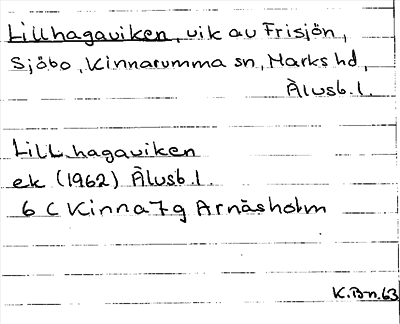 Lillhagaviken, vik av Frisjön,
Sjöbo, Kinnarumma sn, Marks hd,
Älvsb. l.
Lillhagaviken
ek (1962) Älvsb. l.
6 C Kinna 7 g Arnäsholm
K.Bn.63